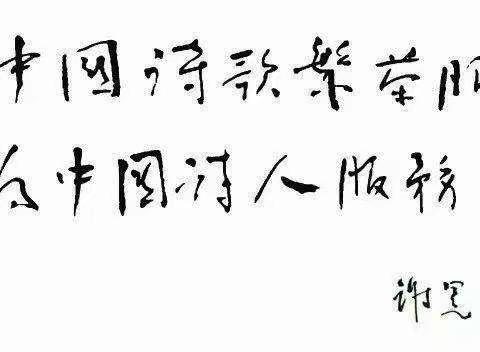 中国诗歌繁荣
为中国诗人服务
谢冕